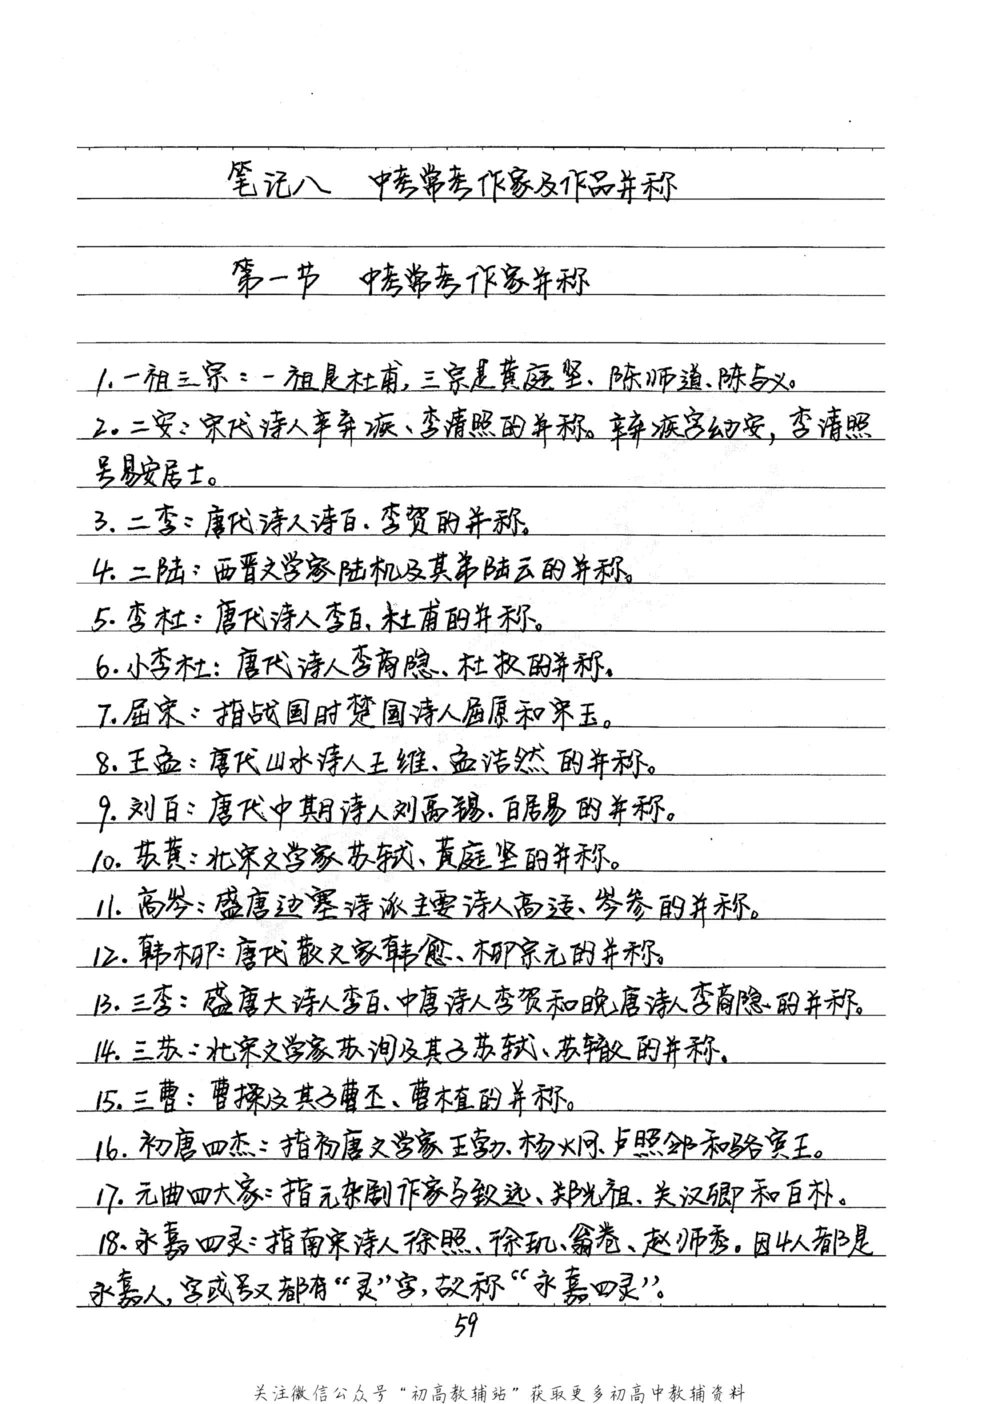 笔记八 中考常考作家及作品并称
第一节 中考常考作家并称
1.一祖三宗：一祖是杜甫，三宗是黄庭坚、陈师道、陈与义。
2.二安：宋代诗人辛弃疾、李清照的并称。辛弃疾字幼安，李清照
号易安居士。
3.二李：唐代诗人诗白、李贺的并称。
4.二陆：西晋文学家陆机及其弟陆云的并称。
5.李杜：唐代诗人李白、杜甫的并称。
6.小李杜：唐代诗人李商隐、杜牧的并称。
7.屈宋：指战国时楚国诗人屈原和宋玉。
8.王孟：唐代山水诗人王维、孟浩然的并称。
9.刘白：唐代中期诗人刘禹锡、白居易的并称。
10.苏黄：北宋文学家苏轼、黄庭坚的并称。
11.高岑：盛唐边塞诗派主要诗人高适、岑参的并称。
12.韩柳：唐代散文家韩愈、柳宗元的并称。
13.三李：盛唐大诗人李白、中唐诗人李贺和晚唐诗人李商隐的并称。
14.三苏：北宋文学家苏洵及其子苏轼、苏辙的并称。
15.三曹：曹操及其子曹丕、曹植的并称。
16.初唐四杰：指初唐文学家王勃、杨炯、卢照邻和骆宾王。
17.元曲四大家：指元杂剧作家马致远、郑光祖、关汉卿和白朴。
18.永嘉四灵：指南宋诗人徐照、徐玑、翁卷、赵师秀。因4人都是
永嘉人，字或号又都有“灵”字，故称“永嘉四灵”。
59
关注微信公众号“初高教辅站”获取更多初高中教辅资料